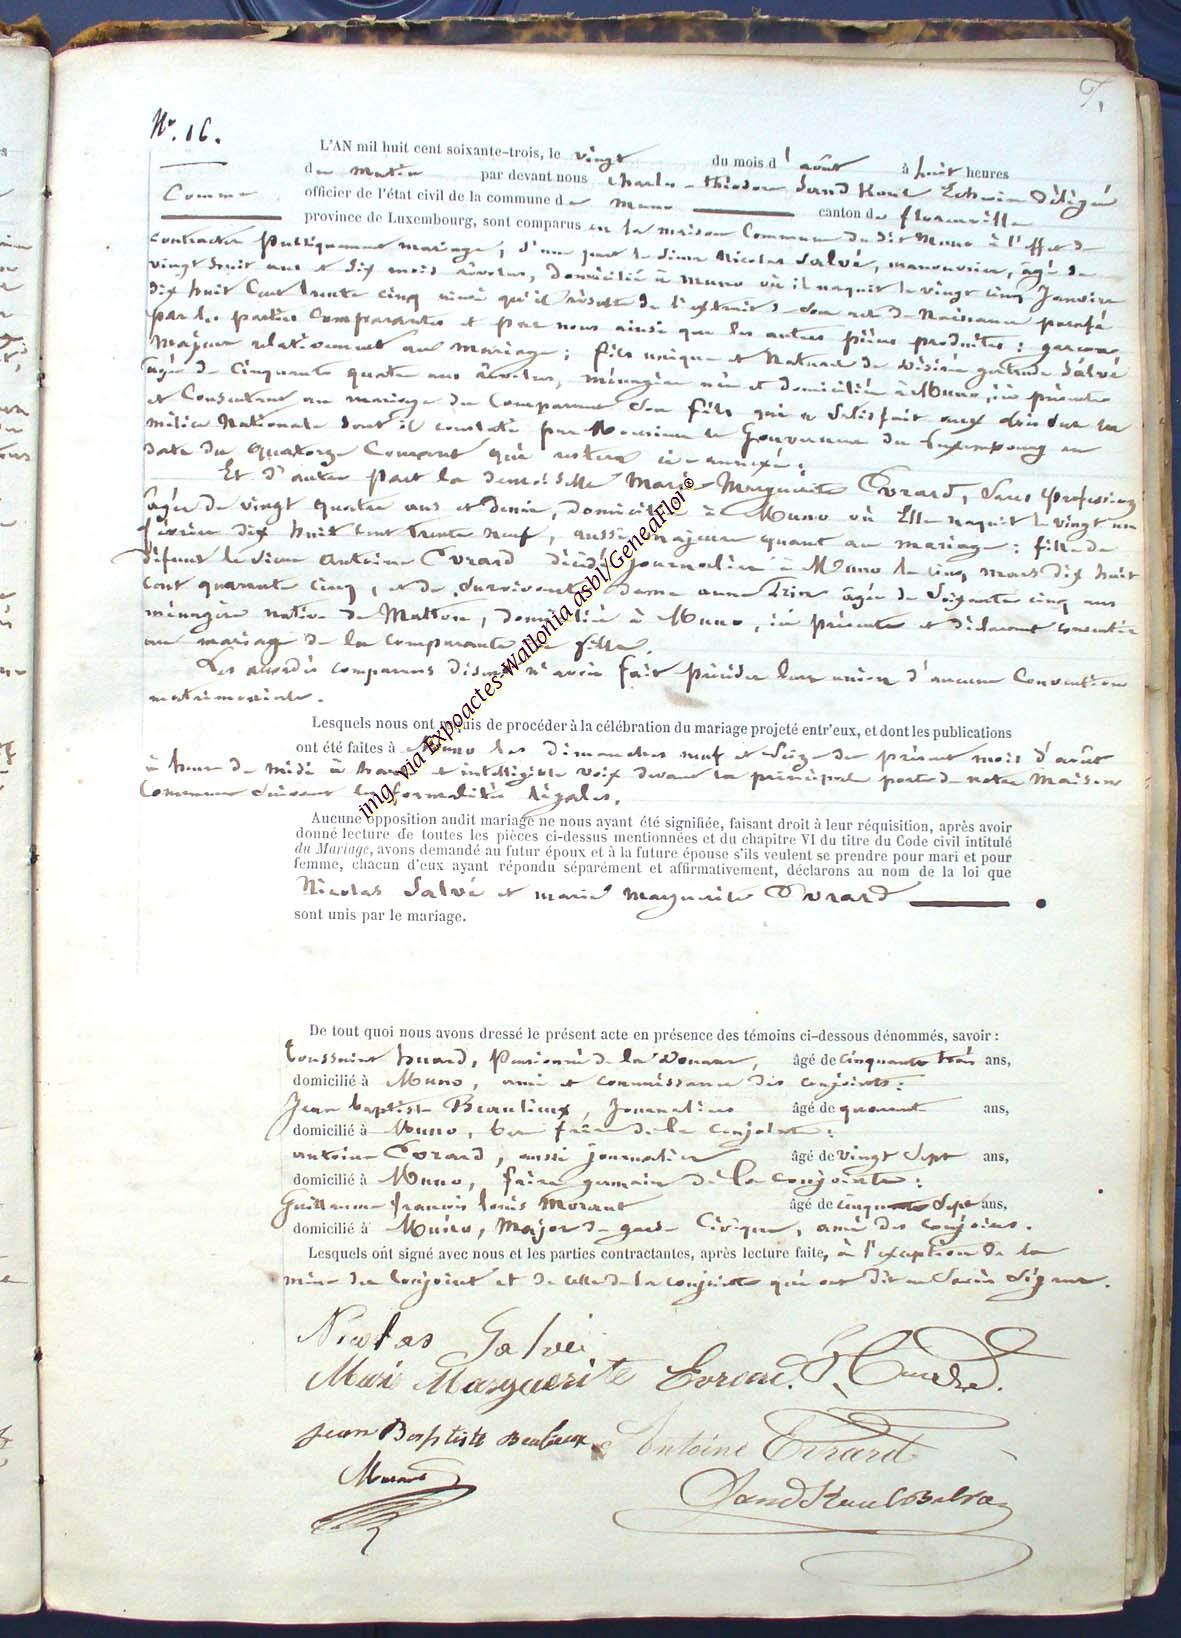 7,
N°. 16.
L'AN mil huit cent soixante-trois, le vingt du mois d'août à huit heures
du matin par devant nous Charles Théodore Echevin délégué
Comme officier de l'état civil de la commune de Muno canton de florenville
province de Luxembourg, sont comparus en la maison Commune du dit Muno à l'effet de
contracter publiquement mariage, d'une part le sieur Nicolas Salvé, manouvrier, âgé de
vingt huit ans et dix mois révolus, domicilié à Muno où il naquit le vingt cinq Janvier
dix huit Cent trente cinq ainsi qu'il résulte de l'extrait de son acte de Naissance paraphé
par les parties Comparantes et par nous ainsi que les autres pièces produites ; garçon
Majeur relativement au mariage ; fils unique et Naturel de Désirée gertrude Salvé
âgée de Cinquante quatre ans révolus, ménagère née et domiciliée à Muno, ici présente
et Consentant au mariage du Comparant son fils qui a satisfait aux lois sur la
milice Nationale dont il constate par Monsieur le Gouverneur du Luxembourg en
date du quatorze Courant qui restera ci-annexé ;
Et d'autre part la demoiselle Marie Marguerite Evrard, sans profession
âgée de vingt quatre ans et demi, domiciliée à Muno où Elle naquit le vingt un
février dix huit cent trente neuf, aussi majeure quant au mariage : fille de
défunt le sieur antoine Evrard décédé journalier à Muno le cinq mars dix huit
cent quarante cinq, et de survivante dame anne âgée de soixante cinq ans
ménagère native de Matton, domiciliée à Muno, ici présente et déclarant consentir
au mariage de la comparante sa fille.
Les accordés comparans disent n'avoir fait précéder leur union d'aucune Convention
matrimoniale.
Lesquels nous ont requis de procéder à la célébration du mariage projeté entr'eux, et dont les publications
ont été faites à Muno les dimanches neuf et seize du présent mois d'août
à heure de midi à haute et intelligible voix devant la principale porte de notre Maison
Commune suivant les formalités légales.
Aucune opposition audit mariage ne nous ayant été signifiée, faisant droit à leur réquisition, après avoir
donné lecture de toutes les pièces ci-dessus mentionnées et du chapitre VI du titre du Code civil intitulé
du Mariage, avons demandé au futur époux et à la future épouse s'ils veulent se prendre pour mari et pour
femme, chacun d'eux ayant répondu séparément et affirmativement, déclarons au nom de la loi que
Nicolas Salvé et marie Marguerite Evrard
sont unis par le mariage.
De tout quoi nous avons dressé le présent acte en présence des témoins ci-dessous dénommés, savoir :
toussaint huard, Pensionné de la Douane, âgé de cinquante trois ans,
domicilié à Muno, ami et connaissance des conjoints ;
Jean baptiste Beaulieux, Journalier âgé de quarante ans,
domicilié à Muno, beau frère de la conjointe ;
antoine Evrard, aussi journalier âgé de vingt sept ans,
domicilié à Muno, frère germain de la conjointe ;
Guillaume françois louis Morant âgé de cinquante sept ans,
domicilié à Muno, Major de garde Civique, ami des conjoints.
Lesquels ont signé avec nous et les parties contractantes, après lecture faite, à l'exception de la
mère du Conjoint et de celle de la conjointe qui ont dit ne savoir signer.
Nicolas Salvé
Mari Marguerite Evrard.
Jean Baptiste Beulieux Antoine Evrard
Morant
img via Expoactes-Wallonia asbl/GeneaFloi©